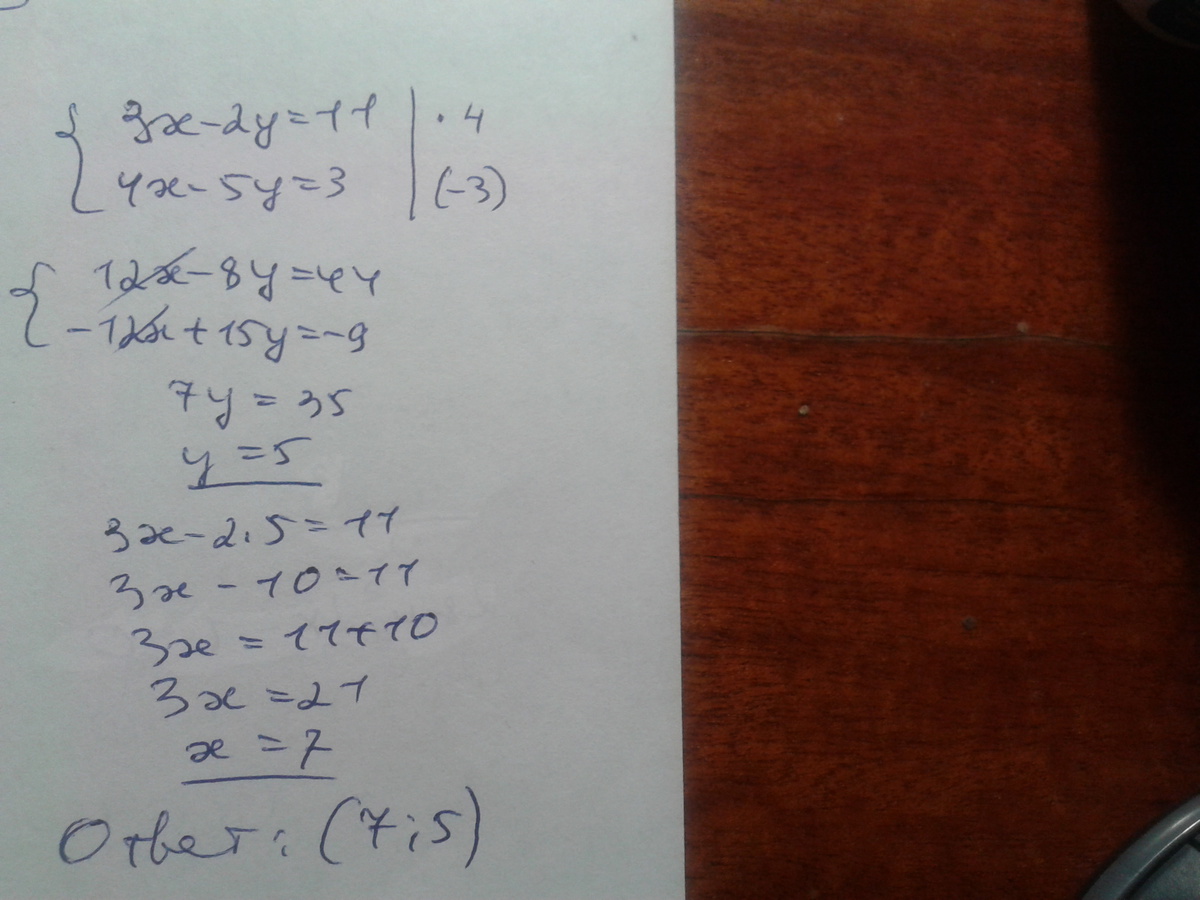 { 3x-2y=11 | · 4
4x-5y=3 | (-3)
{ 12x-8y=44
-12x+15y=-9
7y=35
y=5
3x-2·5=11
3x-10=11
3x=11+10
3x=21
x=7
Ответ: (7;5)